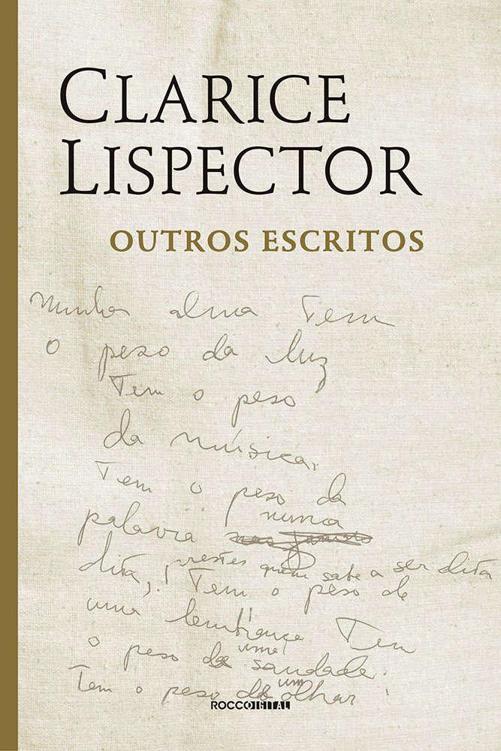 CLARICE
LISPECTOR
OUTROS ESCRITOS
Minha alma tem
o peso da luz
Tem o peso
da música.
Tem o peso da
palavra nunca
dita, prestes quem sabe a ser dita
Tem o peso de
uma lembrança Tem
o peso de uma saudade.
Tem o peso de um olhar
ROCCODIGITAL